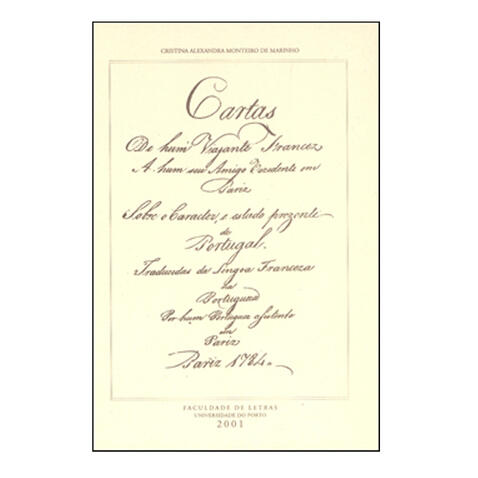 CRISTINA ALEXANDRA MONTEIRO DE MARINHO
Cartas
De hum Viajante Francez
A hum seu Amigo Rezedente em
Pariz
Sobre o Caracter, e estado prezente
de
Portugal.
Traduzidas da Lingoa Franceza
na
Portugueza
Por hum Portuguez assistente
em
Pariz
Pariz 1784.
FACULDADE DE LETRAS
UNIVERSIDADE DO PORTO
2001